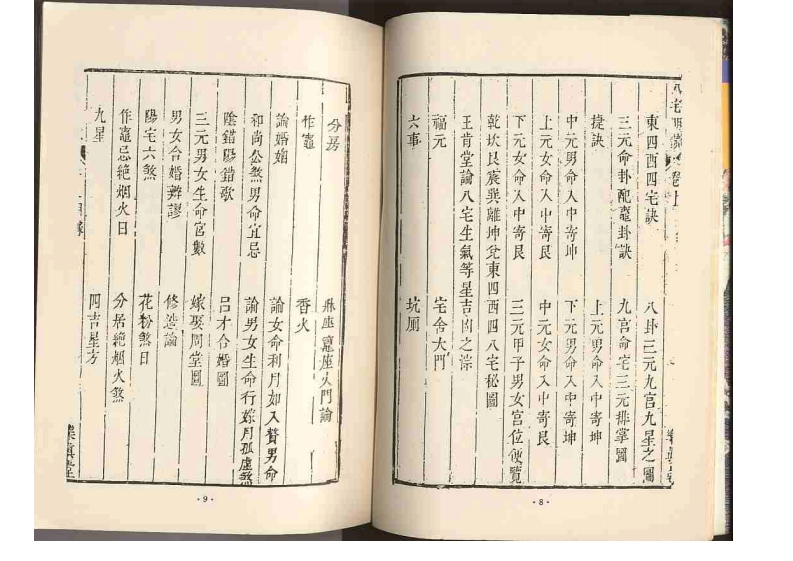 八宅明鏡 卷上
東四西四宅訣 八卦三元九宮九星之圖
三元命卦配竈卦訣 九宮命宅三元排掌圖
捷訣 上元男命入中寄坤
中元男命入中寄坤 下元男命入中寄坤
上元女命入中寄艮 中元女命入中寄艮
下元女命入中寄艮 三元甲子男女宮位便覽
乾坎艮震巽離坤兌東四西四八宅秘圖
王肯堂論八宅生氣等星吉凶之淙
福元 宅舍大門
六事 坑厠
8
分房 牀座竈座人門論
作竈 香火
論婚姻 論女命利月如入贅男命
和尚公煞男命宜忌 論男女生命行嫁月孤虛煞
陰錯陽錯歌 呂才合婚圖
三元男女生命宮數 嫁娶周堂圖
男女合婚辨謬 修造論
陽宅六煞 花粉煞日
作竈忌絶烟火日 分居絶烟火煞
九星 四吉星方
樂眞堂
9